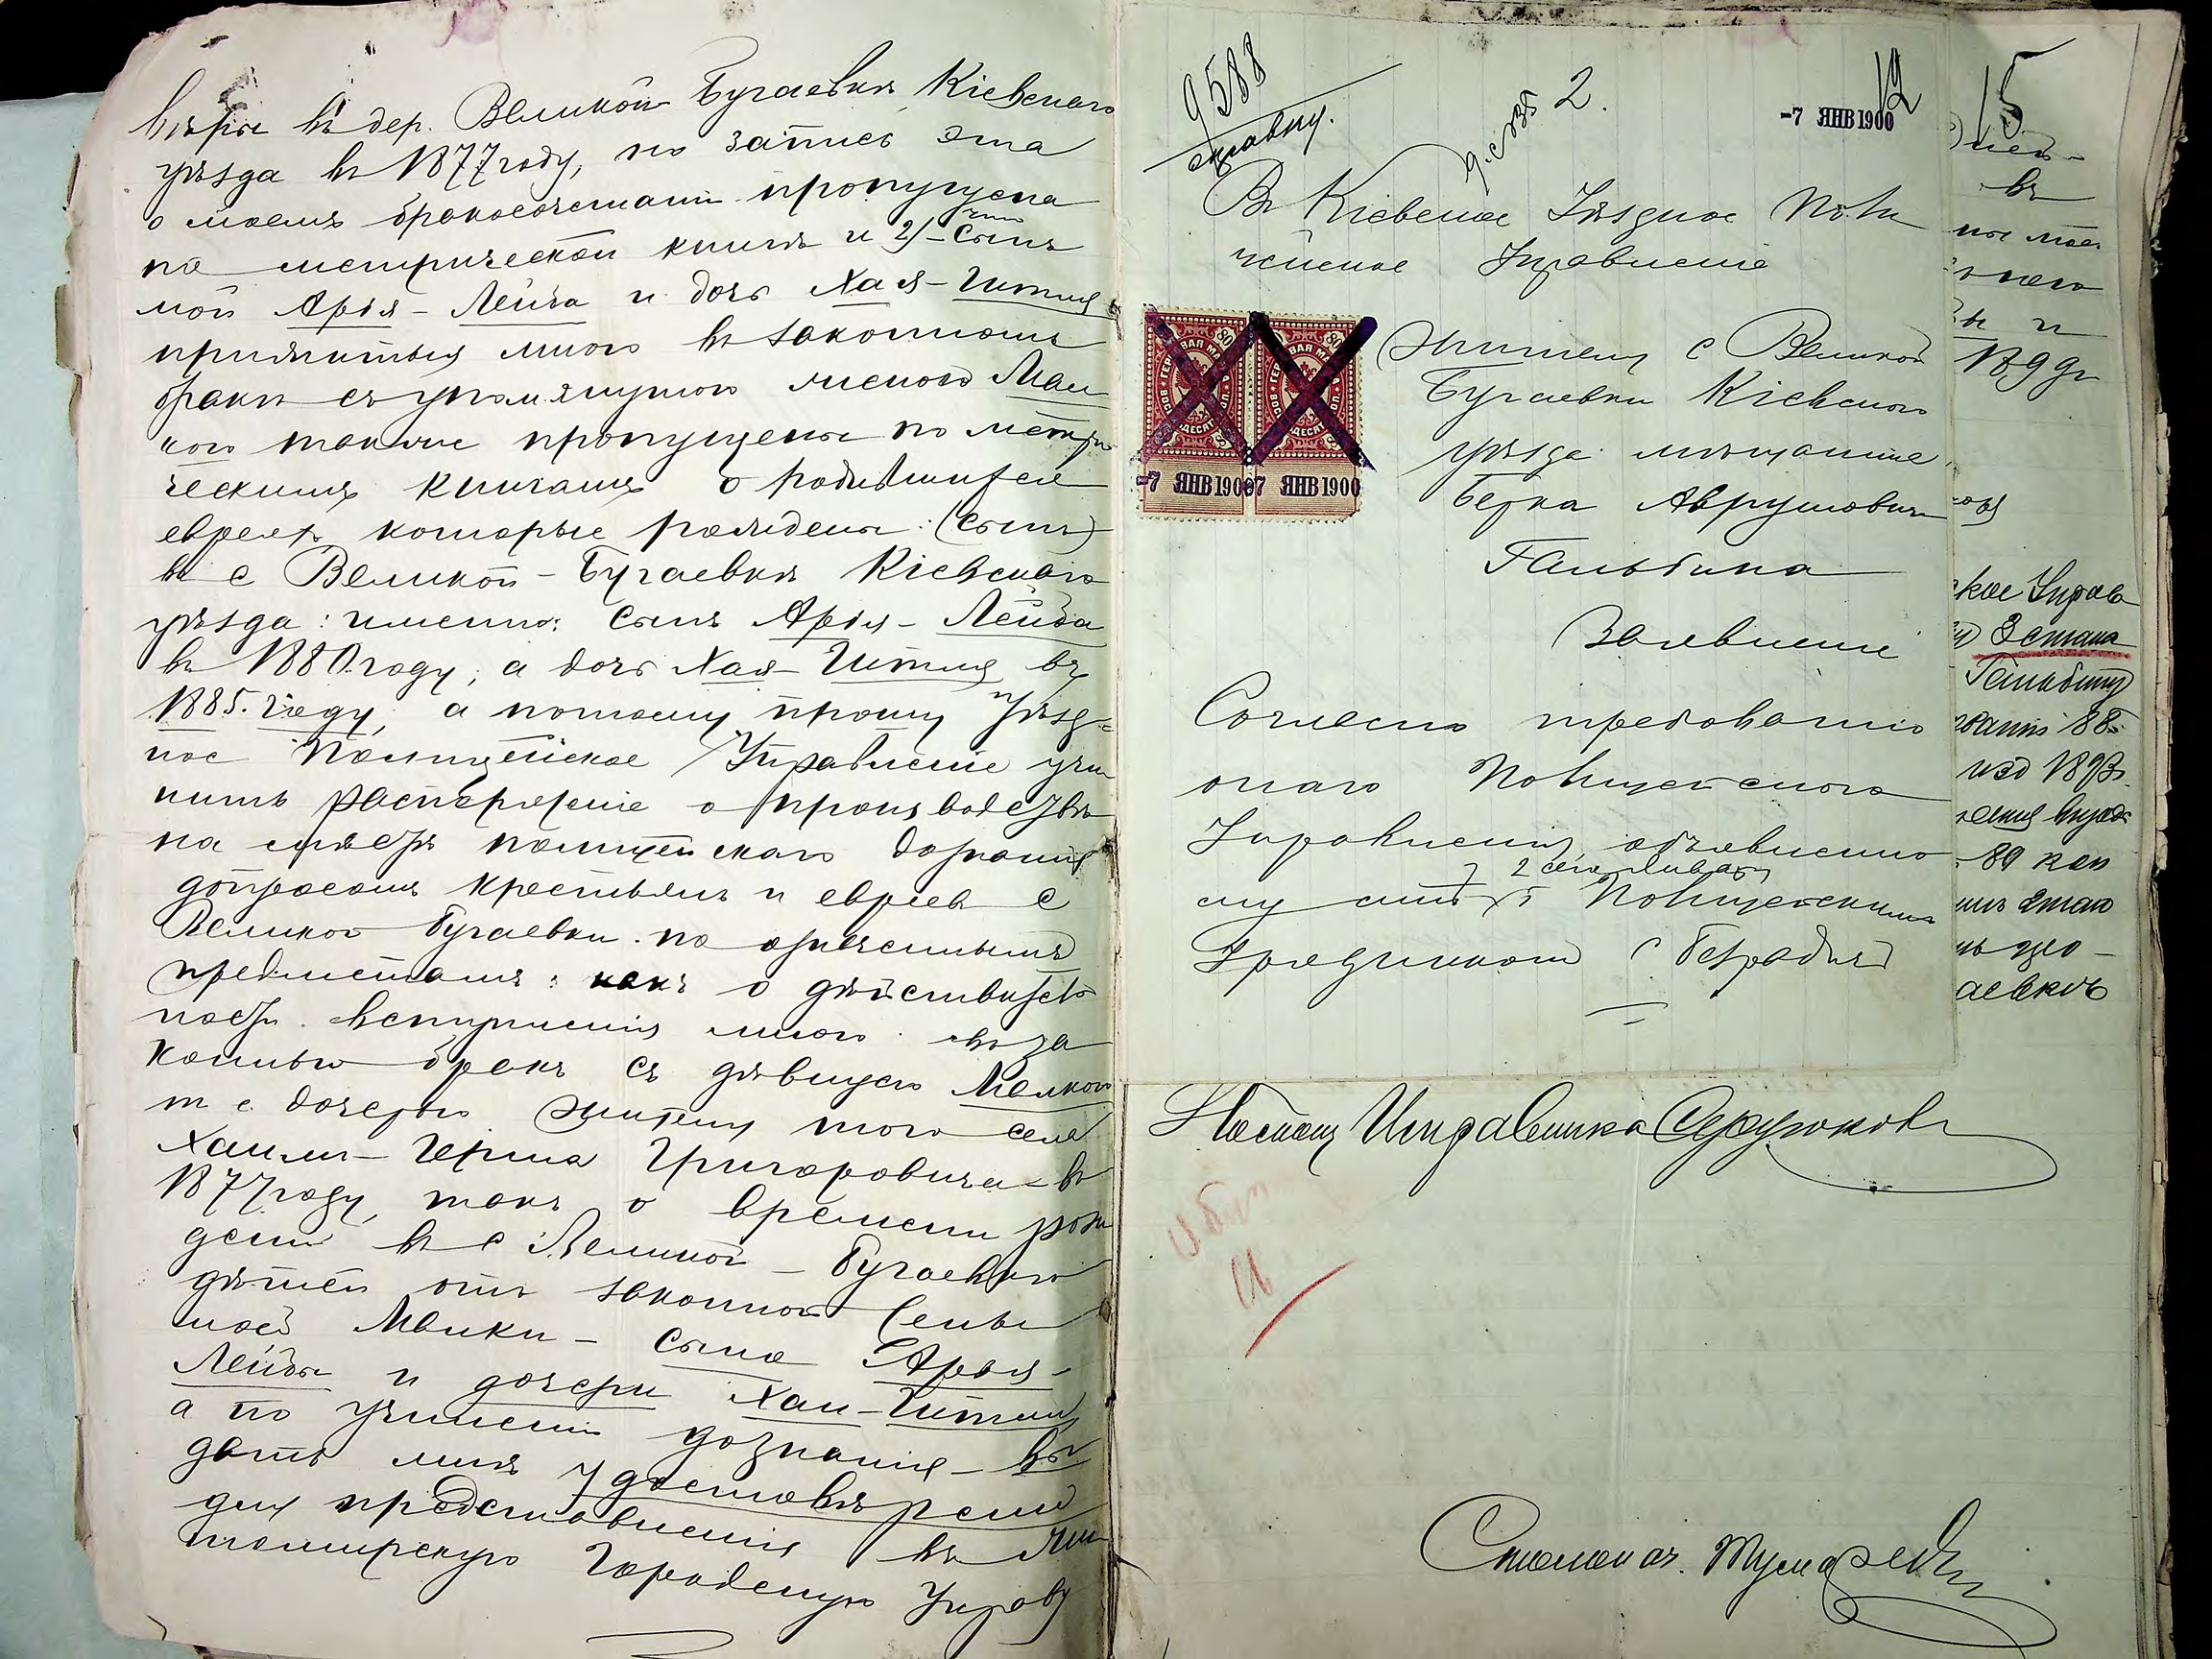 вѣры въ дер. Великой Бугаевкѣ Кіевскаго
уѣзда въ 1877 году, но запись эта
о моемъ бракосочетаніи пропущена
по метрической книгѣ и 2/ что сынъ
мой Арія-Лейба и дочь Хая-Гитля
прижитыя мною въ законномъ
бракѣ съ упомянутою женою Мал
кою также пропущены по метри
ческимъ книгамъ о родившихся
евреяхъ, которые рождены: (сынъ)
въ с Великой-Бугаевкѣ Кіевскаго
уѣзда: именно: сынъ Арія-Лейба
въ 1880 году, а дочь Хая-Гитля въ
1885. году, а потому прошу Уѣзд-
ное Полицейское Управленіе учи
нить распоряженіе о производствѣ
на мѣстѣ полицейскаго дознанія
допросомъ крестьянъ и евреевъ с
Великой Бугаевки по
предметамъ: какъ о дѣйствитель
ности вступленія мною въ за
конный бракъ съ дѣвицею Малкою
т е дочерью жителя того села
Хаима-Герша Григоровича въ
1877 году, такъ о времени рож
денія въ с Великой-Бугаевкѣ
дѣтей отъ законной жены
моей Малки - сына Арья-
Лейбы и дочери Хаи-Гитли
а по учиненіи дознанія - вы
дать мнѣ удостовѣреніе
для представленія въ Жи
томирскую Городскую Управу
9588
справку.
2.
-7 ЯНВ 1900
12
15
Въ Кіевское Уѣздное Поли
цейское Управленіе
ГЕРБОВАЯ МАРКА ВОСЕМЬДЕСЯТ КОП. 80
ГЕРБОВАЯ МАРКА ВОСЕМЬДЕСЯТ КОП. 80
-7 ЯНВ 1900 -7 ЯНВ 1900
Жителя с Великой
Бугаевки Кіевскаго
уѣзда мѣщанина
Берка Аврумовича
Гальбина
Заявленіе
Согласно требованію
онаго Полицейскаго
Управленія, объявленно
2 сего Января
му мнѣ Полицейскимъ
Урядникомъ с Безрадичъ
въ
1899
кое Управ
3 стана
Гальбину
88
изд 1893.
89 коп
аевкѣ
Помощ Исправника
Столонач.